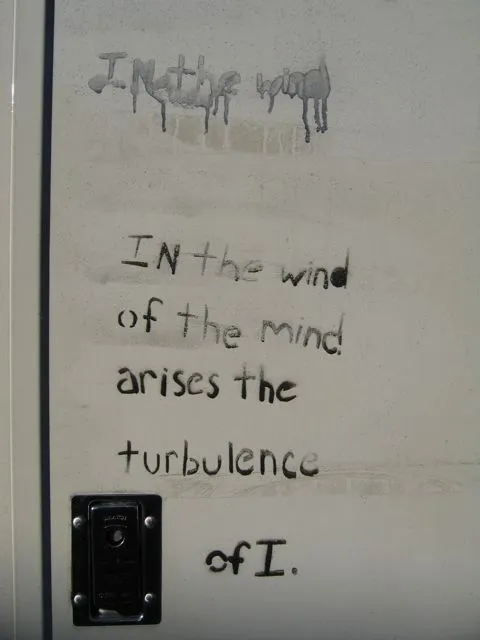 IN the wind
IN the wind
of the mind
arises the
turbulence
of I.